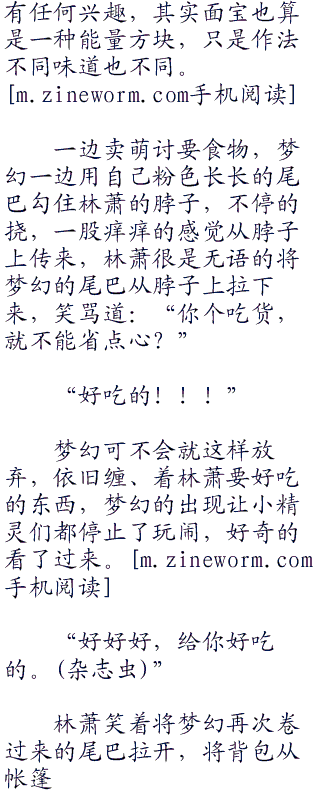 有任何兴趣，其实面宝也算
是一种能量方块，只是作法
不同味道也不同。
[m.zineworm.com手机阅读]
一边卖萌讨要食物，梦
幻一边用自己粉色长长的尾
巴勾住林萧的脖子，不停的
挠，一股痒痒的感觉从脖子
上传来，林萧很是无语的将
梦幻的尾巴从脖子上拉下
来，笑骂道：“你个吃货，
就不能省点心？”
“好吃的！！！”
梦幻可不会就这样放
弃，依旧缠、着林萧要好吃
的东西，梦幻的出现让小精
灵们都停止了玩闹，好奇的
看了过来。[m.zineworm.com
手机阅读]
“好好好，给你好吃
的。(杂志虫)”
林萧笑着将梦幻再次卷
过来的尾巴拉开，将背包从
帐篷